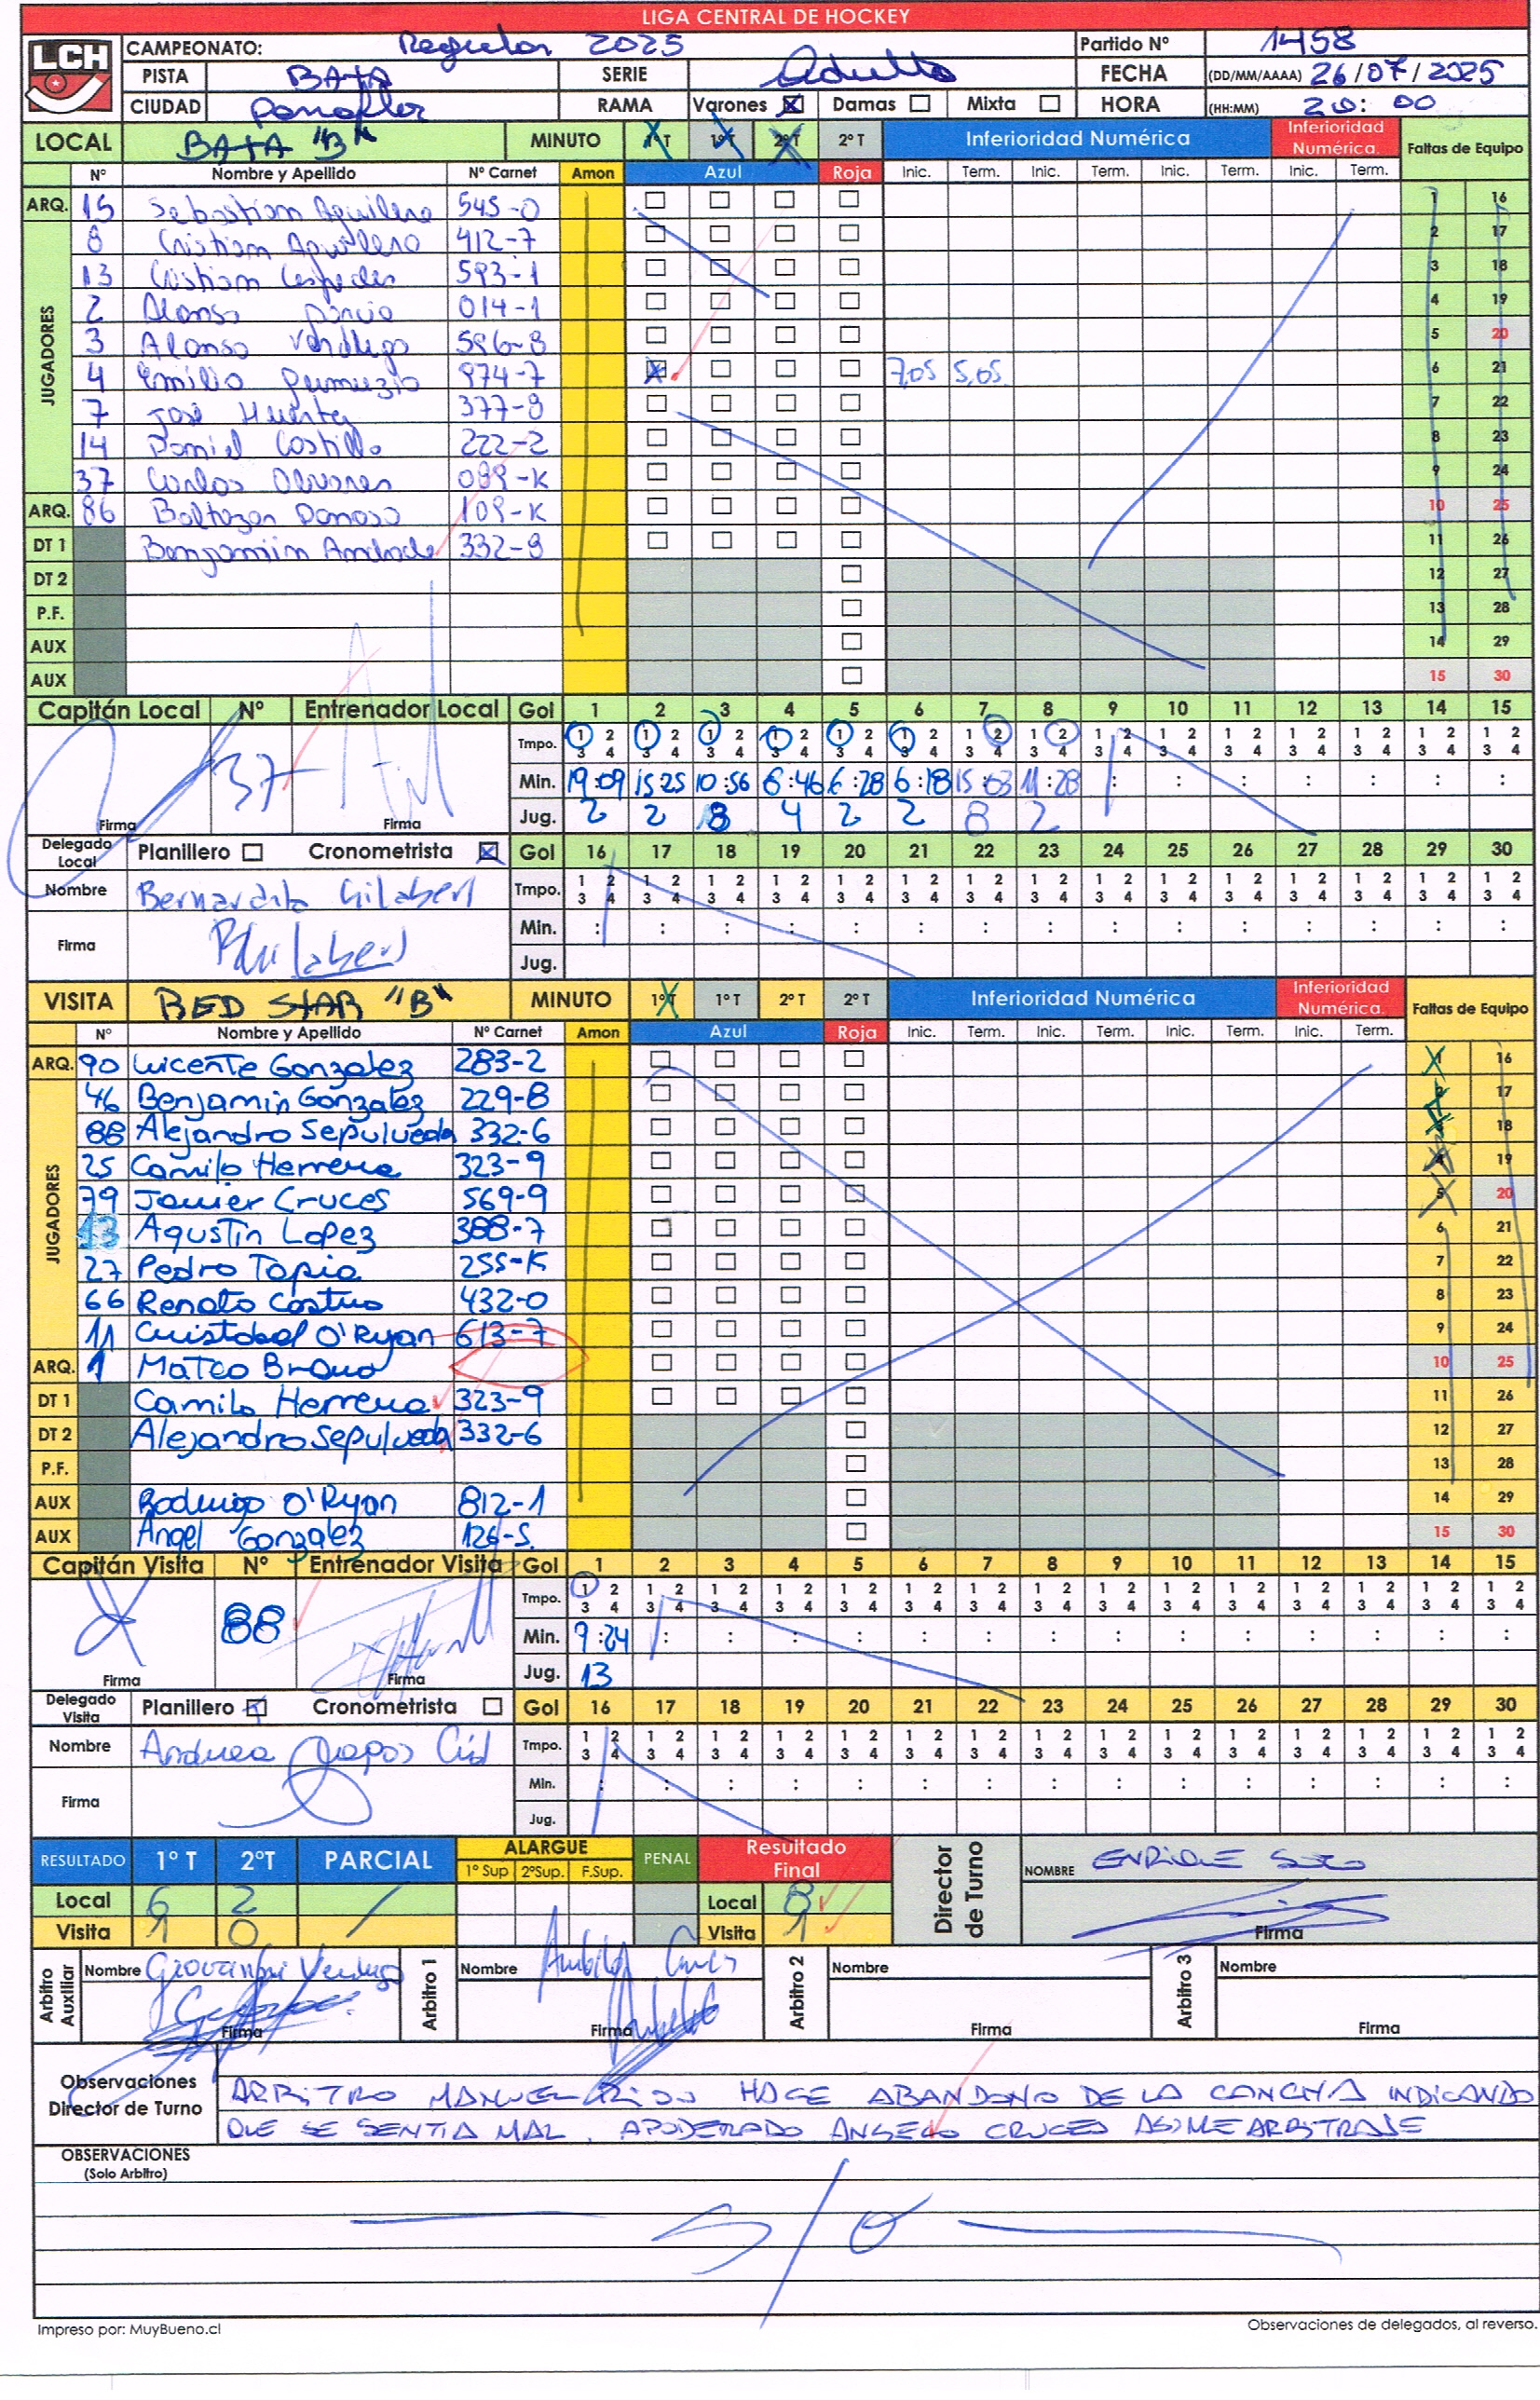 LIGA CENTRAL DE HOCKEY
LCH
CAMPEONATO: Regular 2025 Partido Nº 1458
PISTA BATA SERIE Adulto FECHA (DD/MM/AAAA) 26/07/2025
CIUDAD Peñaflor RAMA Varones Damas Mixta HORA (HH:MM) 20:00
LOCAL BATA "B" MINUTO 1º T 1º T 2º T 2º T Inferioridad Numérica Inferioridad Numérica. Faltas de Equipo
Nº Nombre y Apellido Nº Carnet Amon Azul Roja Inic. Term. Inic. Term. Inic. Term. Inic. Term.
ARQ. 15 Sebastian Aguilera 545-0 1 16
JUGADORES
8 Cristian Aguilera 412-7 2 17
13 Cristian Cespedes 593-1 3 18
2 Alonso 014-1 4 19
3 Alonso Verdugo 596-8 5 20
4 Emilio 974-7 7,05 5,05 6 21
7 José Huerta 377-9 7 22
14 Daniel Castillo 222-2 8 23
37 Carlos Olivares 089-K 9 24
ARQ. 86 Baltazar Donoso 108-K 10 25
DT 1 Benjamin Andrade 332-9 11 26
DT 2 12 27
P.F. 13 28
AUX 14 29
AUX 15 30
Capitán Local Nº Entrenador Local Gol 1 2 3 4 5 6 7 8 9 10 11 12 13 14 15
Tmpo. 1 2 1 2 1 2 1 2 1 2 1 2 1 2 1 2 1 2 1 2 1 2 1 2 1 2 1 2 1 2
3 4 3 4 3 4 3 4 3 4 3 4 3 4 3 4 3 4 3 4 3 4 3 4 3 4 3 4 3 4
37 Min. 19:09 15:25 10:56 6:46 6:28 6:18 15:03 11:28 : : : : : : :
Firma Firma Jug. 2 2 8 4 2 2 8 2
Delegado Local Planillero Cronometrista Gol 16 17 18 19 20 21 22 23 24 25 26 27 28 29 30
Nombre Bernardita Gilabert Tmpo. 1 2 1 2 1 2 1 2 1 2 1 2 1 2 1 2 1 2 1 2 1 2 1 2 1 2 1 2 1 2
3 4 3 4 3 4 3 4 3 4 3 4 3 4 3 4 3 4 3 4 3 4 3 4 3 4 3 4 3 4
Firma Min. : : : : : : : : : : : : : : :
Jug.
VISITA RED STAR "B" MINUTO 1º T 1º T 2º T 2º T Inferioridad Numérica Inferioridad Numérica. Faltas de Equipo
Nº Nombre y Apellido Nº Carnet Amon Azul Roja Inic. Term. Inic. Term. Inic. Term. Inic. Term.
ARQ. 90 Vicente Gonzalez 283-2 1 16
JUGADORES
46 Benjamin Gonzalez 229-8 17
88 Alejandro Sepulveda 332-6 18
25 Camilo Herrera 323-9 4 19
79 Javier Cruces 569-9 5 20
13 Agustin Lopez 388-7 6 21
27 Pedro Tapia 255-K 7 22
66 Renato Castro 432-0 8 23
11 Cristobal O'Ryan 613-7 9 24
ARQ. 1 Mateo Bravo 10 25
DT 1 Camilo Herrera 323-9 11 26
DT 2 Alejandro Sepulveda 332-6 12 27
P.F. 13 28
AUX Rodrigo O'Ryan 812-1 14 29
AUX Angel Gonzalez 126-5 15 30
Capitán Visita Nº Entrenador Visita Gol 1 2 3 4 5 6 7 8 9 10 11 12 13 14 15
Tmpo. 1 2 1 2 1 2 1 2 1 2 1 2 1 2 1 2 1 2 1 2 1 2 1 2 1 2 1 2 1 2
3 4 3 4 3 4 3 4 3 4 3 4 3 4 3 4 3 4 3 4 3 4 3 4 3 4 3 4 3 4
88 Min. 9:24 : : : : : : : : : : : : : :
Firma Firma Jug. 13
Delegado Visita Planillero Cronometrista Gol 16 17 18 19 20 21 22 23 24 25 26 27 28 29 30
Nombre Andrea Cid Tmpo. 1 2 1 2 1 2 1 2 1 2 1 2 1 2 1 2 1 2 1 2 1 2 1 2 1 2 1 2 1 2
3 4 3 4 3 4 3 4 3 4 3 4 3 4 3 4 3 4 3 4 3 4 3 4 3 4 3 4 3 4
Firma Min. : : : : : : : : : : : : : : :
Jug.
RESULTADO 1º T 2ºT PARCIAL ALARGUE 1º Sup 2ºSup. F.Sup. PENAL Resultado Final Director de Turno NOMBRE ENRIQUE SOTO
Local 6 2 Local 8
Visita 1 0 Visita 1 Firma
Arbitro Auxiliar Nombre Giovanni Verdugo Arbitro 1 Nombre Arbitro 2 Nombre Arbitro 3 Nombre
Firma Firma Firma Firma
Observaciones Director de Turno
ARBITRO MANUEL HACE ABANDONO DE LA CANCHA INDICANDO
QUE SE SENTIA MAL, APODERADO ANGELO CRUCES ASUME ARBITRAJE
OBSERVACIONES
(Solo Arbitro)
S/O
Impreso por: MuyBueno.cl Observaciones de delegados, al reverso.